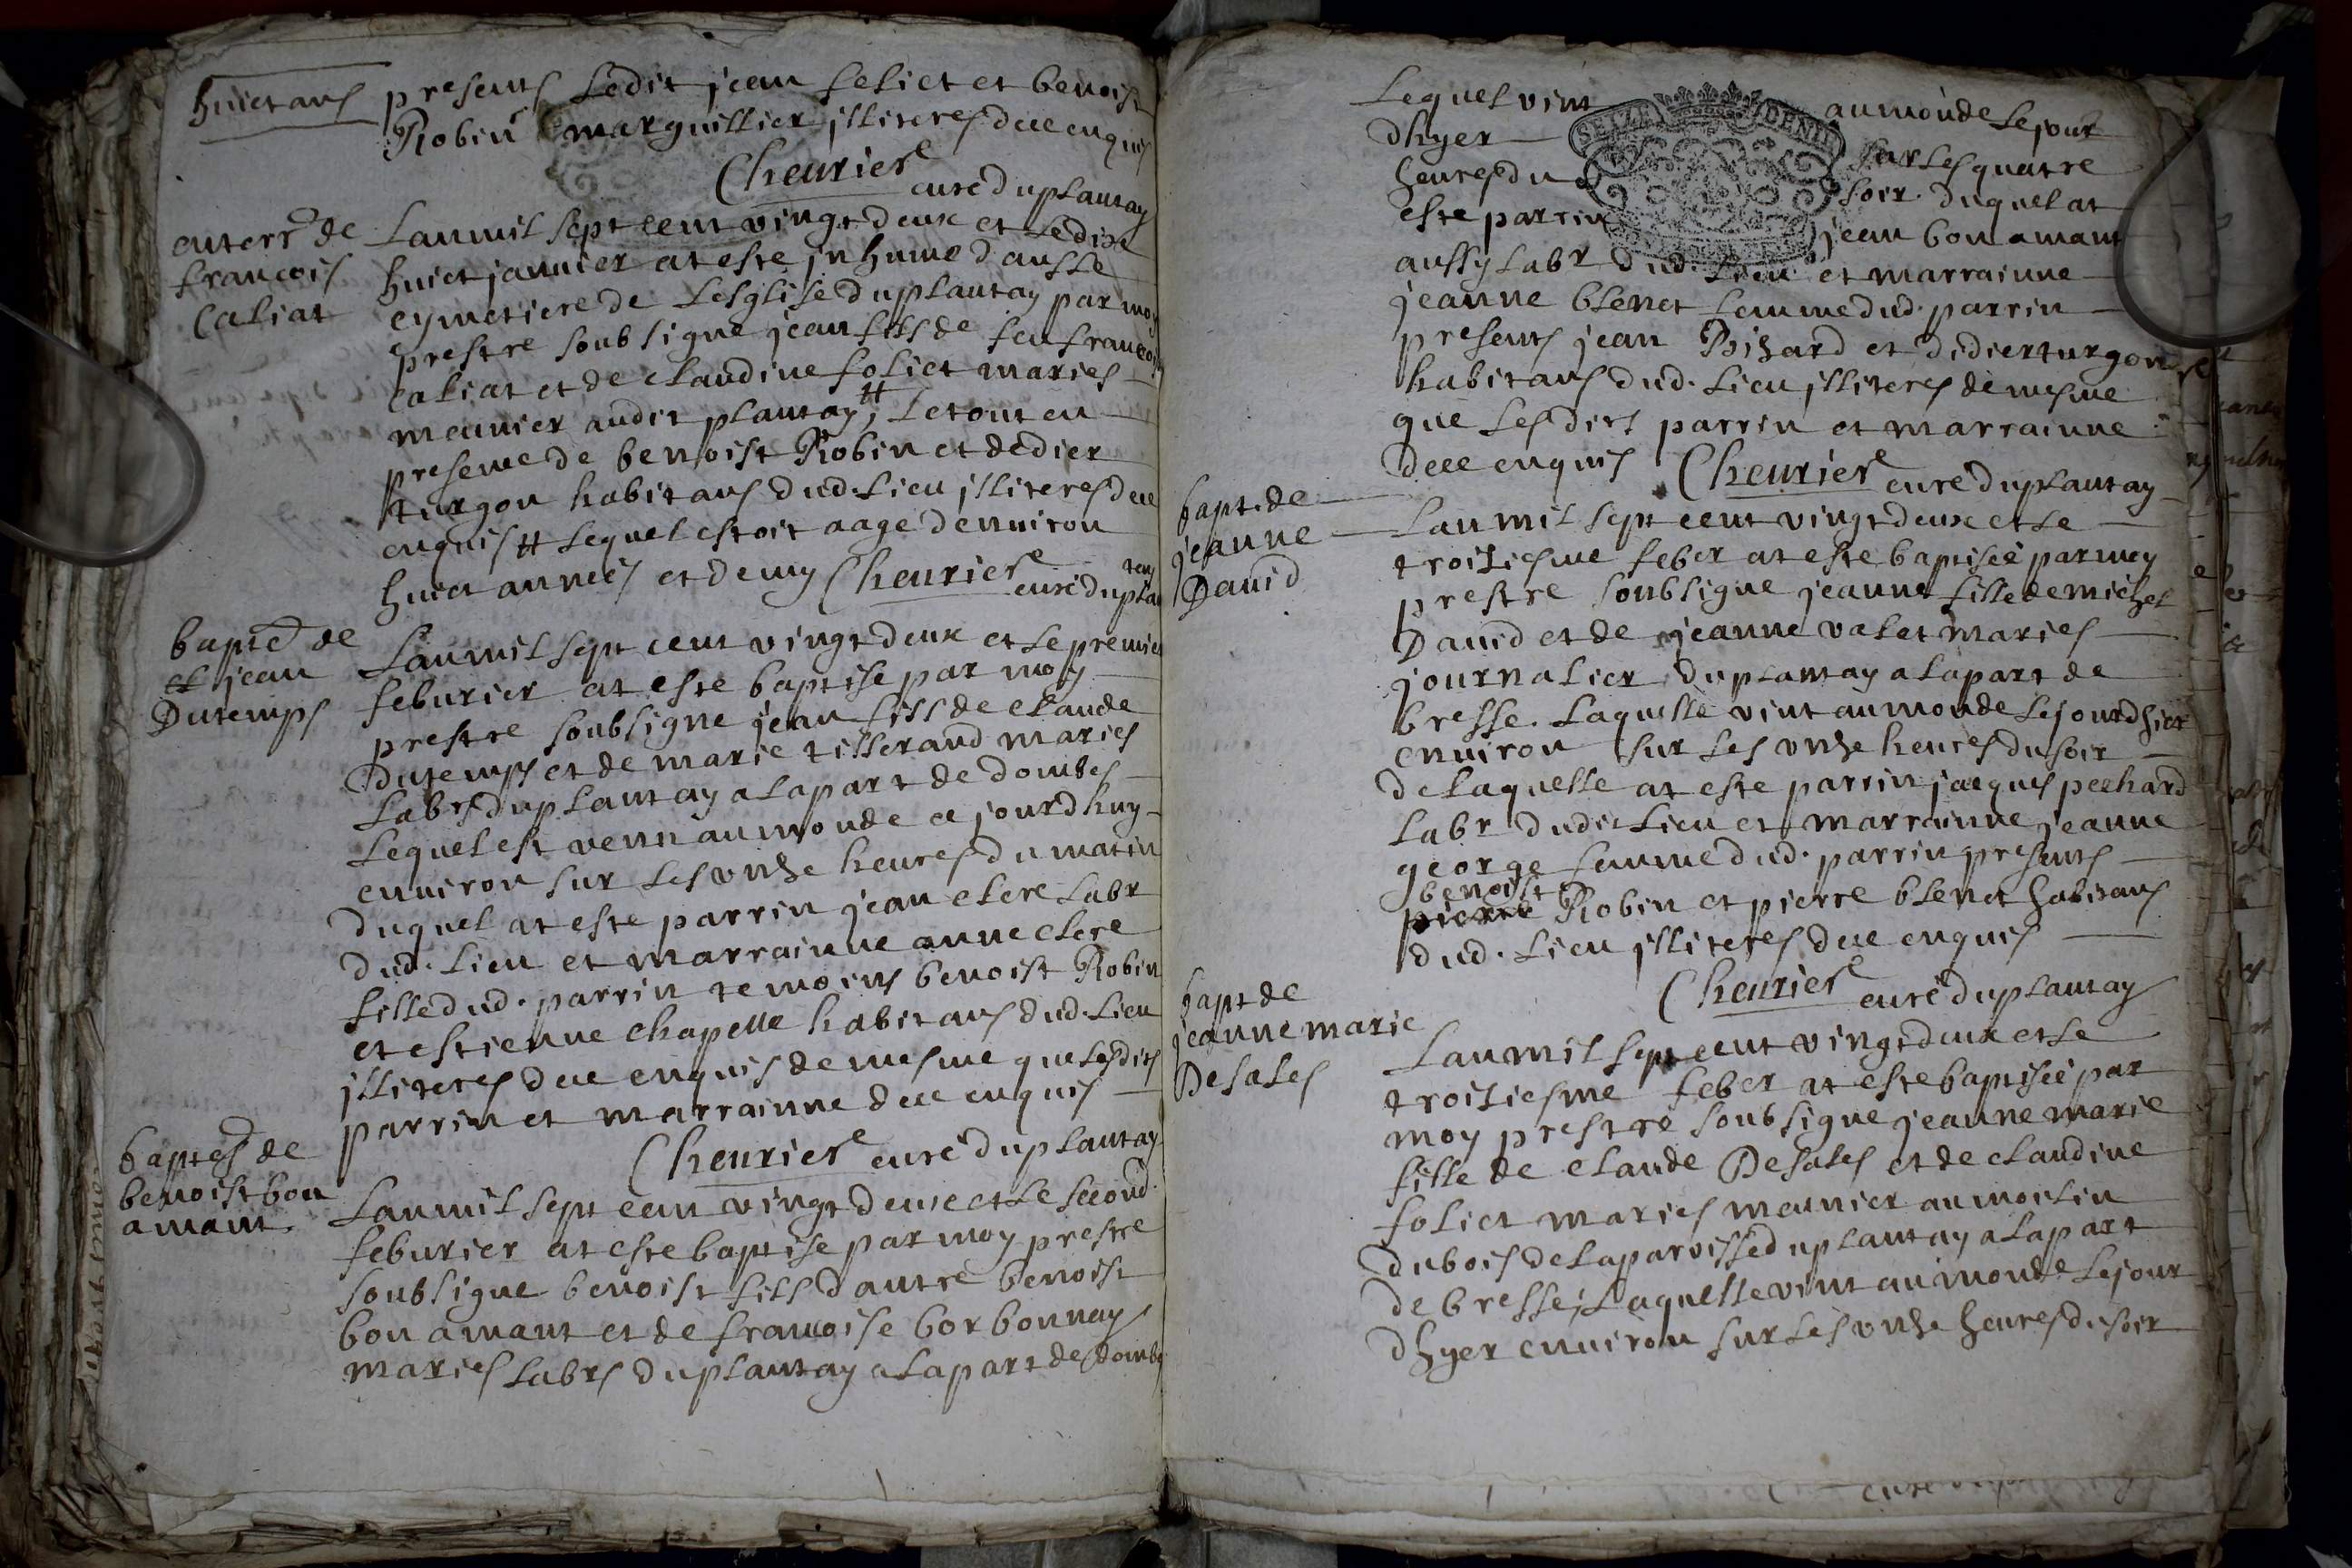 huict ans
presents Ledit jean feliet et benoist
Robin marguillier jlliteres dece enquis
Cheurier curé du plantay
enterrt de
francois
Caliat
Lan mil sept cent vingt deux et Le dix
huict januier at este jnhumé dans Le
cymetiere de Lesglise du plantay par moy
prestre soubsigne jean fils de feu francois
caliat et de claudine foliet maries
meunier audit plantay, # Le tout en
presence de benoist Robin et dedier
turgon habitans dud. Lieu jlliteres dece
enquis # Lequel estoit aagé denuiron
huict années et demy Cheurier curé du plan
tay
bapte de
et jean
Dutemps
Lan mil sept cent vingt deux et Le premier
feburier at este baptise par moy
prestre soubsigne jean fils de claude
Dutemps et de marie tisserand maries
Labrs du plantay a La part de dombes
Lequel est venu au monde ce jourdhuy
enuiron sur Les vnze heures du matin
duquel at este parrin jean clere Labr
dud. Lieu et marrainne anne clere
fille dud. parrin temoins benoist Robin
et estienne chapelle habitans dud. Lieu
jlliteres dece enquis de mesme que Lesdits
parrin et marrainne dece enquis
Cheurier curé du plantay
baptes de
benoist bon
amant
Lan mil sept cent vingt deux et Le second
feburier at este baptise par moy prestre
soubsigne benoist fils dautre benoist
bon amant et de francoise borbonnay
maries Labrs du plantay a La part de dombe
Lequel vint au monde Le jour
dhyer sur Les quatre
heures du soir. duquel at
este parrin jean bon amant
SEIZE DENIE
aussy Labr dud. Lieu et marrainne
jeanne blenet femme dud. parrin
presents jean Bizard et didier turgon
habitans dud. Lieu jlliteres de mesme
que Lesdits parrin et marrainne
dece enquis Cheurier curé du plantay
bapt. de
jeanne
Dauid
Lan mil sept cent vingt deux et Le
troisiesme feber at este baptisée par moy
prestre soubsigne jeanne fille de michel
Dauid et de jeanne valet maries
journalier du plantay a La part de
bresse. Laquelle vint au monde Le jour dhier
enuiron sur Les vnze heures du soir
de Laquelle at este parrin jacques pechard
Labr dudit Lieu et marrainne jeanne
george femme dud. parrin presents
benoist
pierre Robin et pierre blenet habitans
dud. Lieu jlliteres dece enquis
Cheurier curé du plantay
bapt de
jeanne marie
Desales
Lan mil sept cent vingt deux et Le
troisiesme feber at este baptisée par
moy prestre soubsigne jeanne marie
fille de claude Desales et de claudine
foliet maries meunier au moulin
du bois de La paroisse du plantay a La part
de bresse, Laquelle vint au monde Le jour
dhyer enuiron sur Les vnze heures du soir